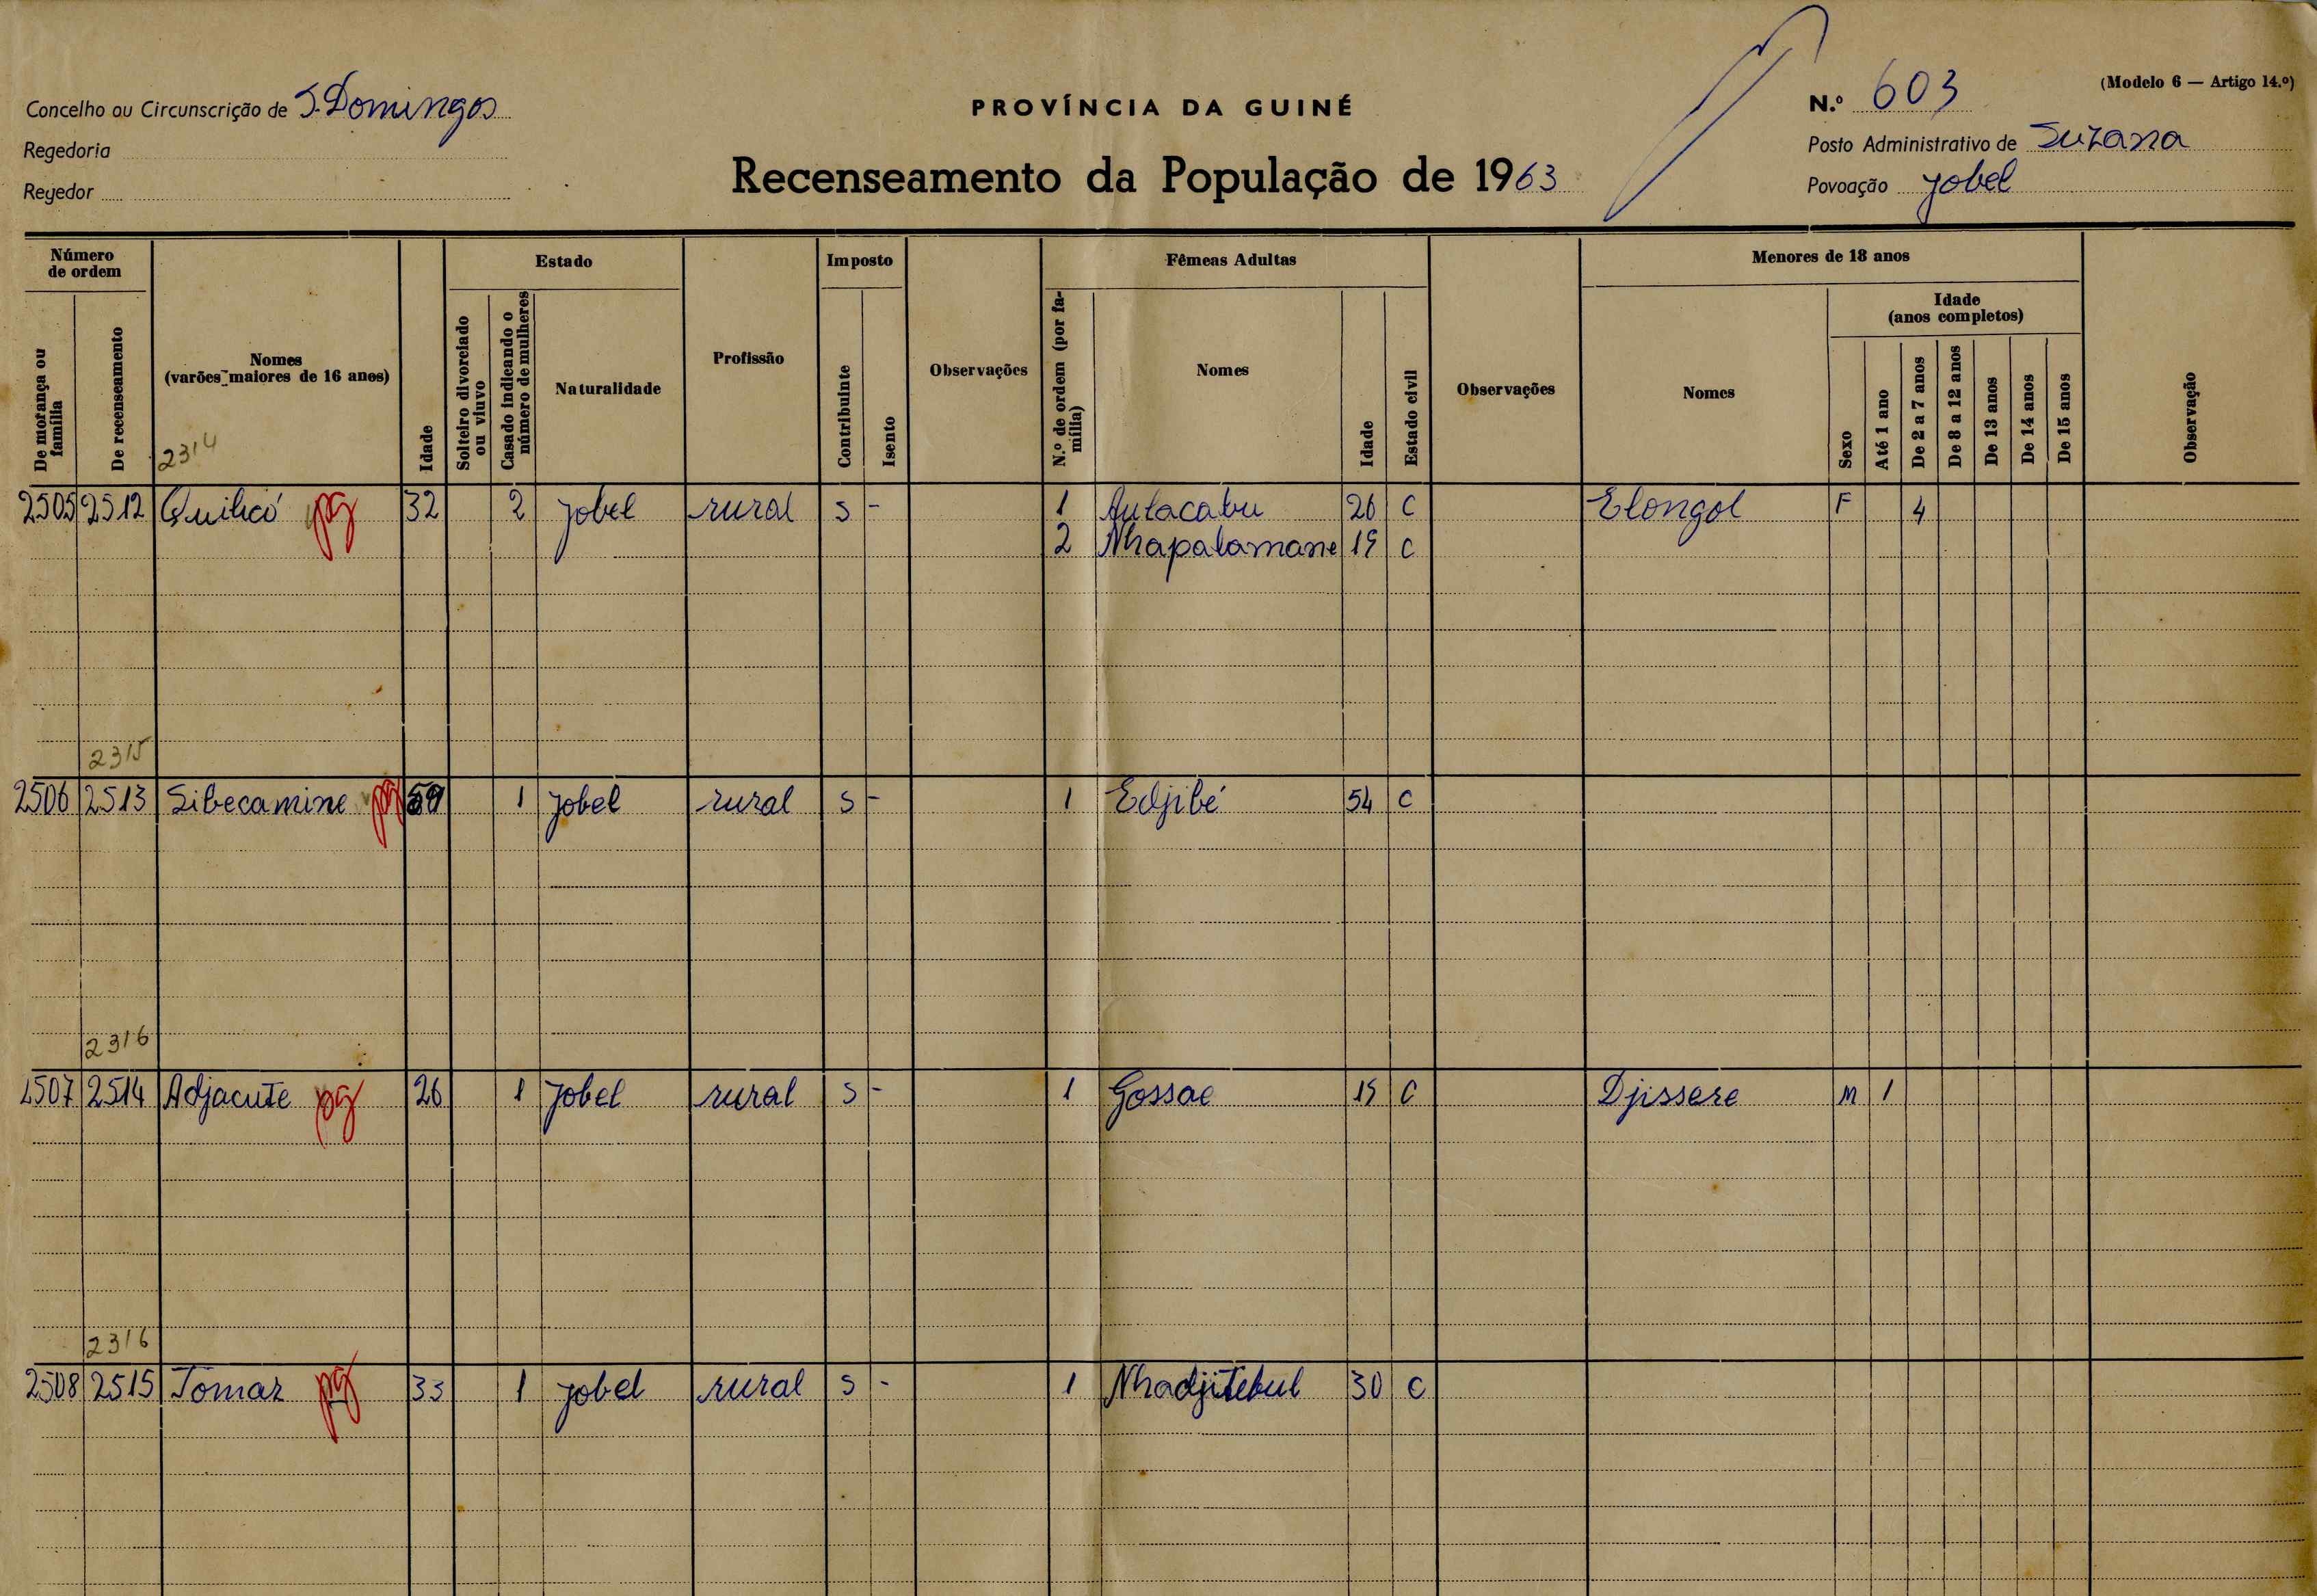 (Modelo 6 — Artigo 14.º)
Concelho ou Circunscrição de S. Domingos
PROVÍNCIA DA GUINÉ
N.º 603
Regedoria
Posto Administrativo de Suzana
Regedor
Recenseamento da População de 1963
Povoação Jobel
Número de ordem
Estado
Imposto
Fêmeas Adultas
Menores de 18 anos
Idade (anos completos)
De morança ou família
De recenseamento
Nomes (varões maiores de 16 anos)
Idade
Solteiro divorciado ou viuvo
Casado indicando o número de mulheres
Naturalidade
Profissão
Contribuinte
Isento
Observações
N.º de ordem (por família)
Nomes
Idade
Estado civil
Observações
Nomes
Sexo
Até 1 ano
De 2 a 7 anos
De 8 a 12 anos
De 13 anos
De 14 anos
De 15 anos
Observação
2314
2505 2512 Quilicó pg 32 2 Jobel rural s - 1 Aulacabu 26 C Elongol F 4
2 Nhapalamane 19 C
2315
2506 2513 Sibecamine pg 59 1 Jobel rural s - 1 Edjibé 54 C
2316
2507 2514 Adjacute pg 26 1 Jobel rural s - 1 Gossae 19 C Djissere M 1
2316
2508 2515 Tomaz pg 33 1 Jobel rural s - 1 Nhadjitebul 30 C